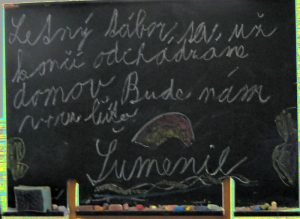 Letný tábor sa už
končí odchádzame
domov. Bude nám
veru ľúto.
Lumenie